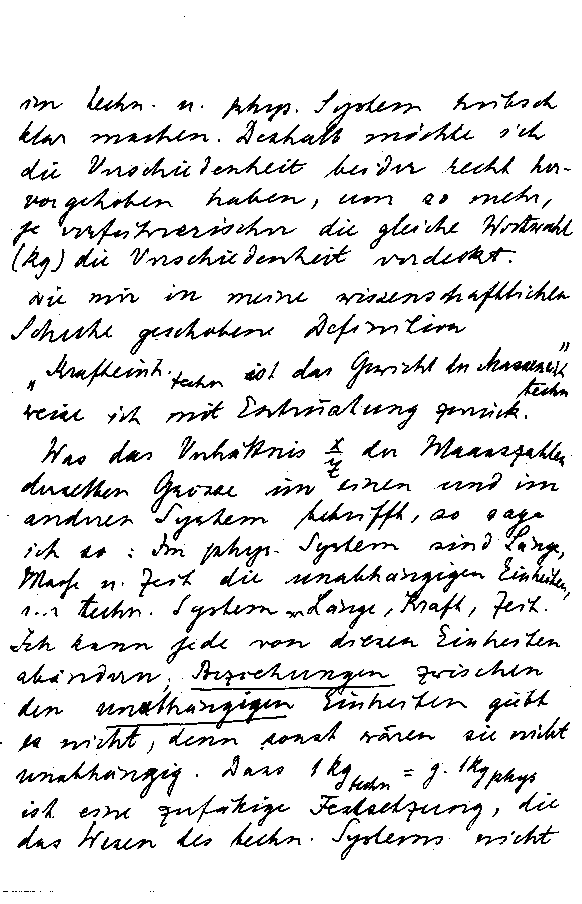 im techn. u. phys. System hübsch
klar machen. Deshalb möchte ich
die Verschiedenheit beider recht her-
vorgehoben haben, um so mehr,
je verführerischer die gleiche Wortwahl
(kg) die Verschiedenheit verdeckt.
Die mir in meine wissenschaftlichen
Schuhe geschobene Definition
„Krafteinh. techn ist das Gewicht der Masseneinh techn"
weise ich mit Entrüstung zurück.
Was das Verhältnis x/y der Maasszahlen
derselben Grösse im einen und im
anderen System betrifft, so sage
ich so: Im phys. System sind Länge,
Masse u. Zeit die unabhängigen Einheiten,
im techn. System Länge, Kraft, Zeit.
Ich kann jede von diesen Einheiten
abändern; Beziehungen zwischen
den unabhängigen Einheiten gibt
es nicht, denn sonst wären sie nicht
unabhängig. Dass 1 kg techn = g. 1 kg phys
ist eine zufällige Festsetzung, die
das Wesen des techn. Systems nicht